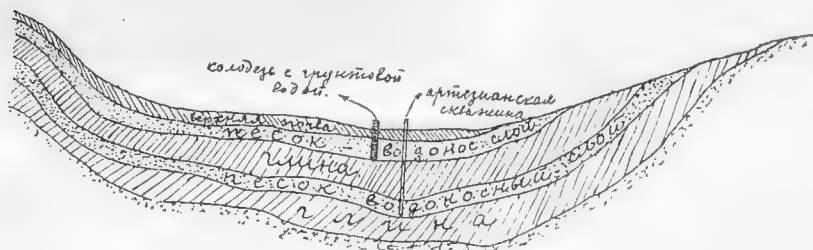 колодезь с грунтовой
водой.
артезианская
скважина
верхняя почва
песок водонос слой
глина
песок водоносный слой
глина